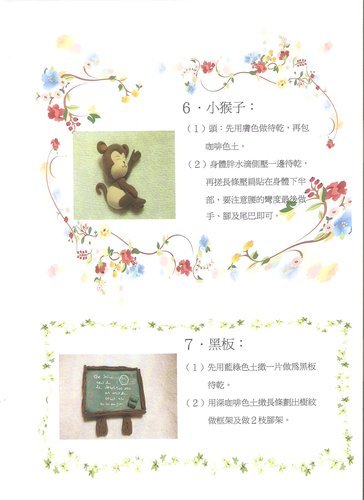 6．小猴子：
（1）頭：先用膚色做待乾，再包
咖啡色土。
（2）身體胖水滴側壓一邊待乾，
再搓長條壓扁貼在身體下半
部，要注意腰的彎度最後做
手、腳及尾巴即可。
7．黑板：
（1）先用藍綠色土擀一片做為黑板
待乾。
（2）用深咖啡色土擀長條劃出樹紋
做框架及做2枝腳架。